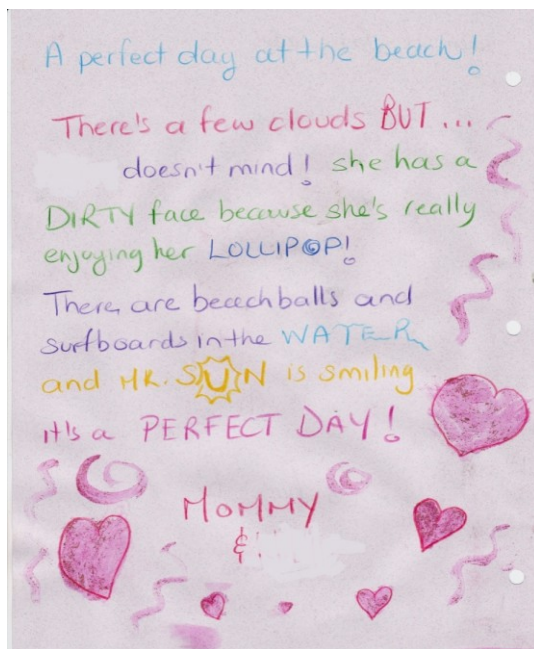 A perfect day at the beach!
There's a few clouds BUT...
doesn't mind! she has a
DIRTY face because she's really
enjoying her LOLLIPOP!
There are beachballs and
surfboards in the WATER
and MR. SUN is smiling
it's a PERFECT DAY!
MOMMY
&